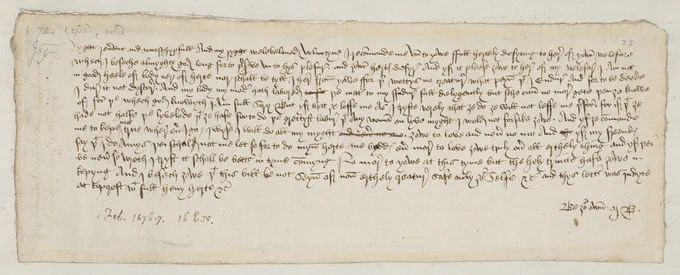 Ryght reverent and wurschypfull And my ryght welebeloved Voluntyne I recomande me un to yowe full hertely desyring to here of yowr welefare
whech I beseche almyghty god long for to preserve un to hys plesure and yowr herts desyre And yf it please yowe to here of my welefare I am not
in good heele of body ner of herte nor schall be tyll I here from yowe for yer wottys no creature what peyn yt I endure And for to be deede
I dare it not dyscure And my lady my moder hath labored ye mater to my fadure full delygently but sche can no more gete yen ye knowe
of for ye whech god knowyth I am full sory But yf that ye loffe me As I tryste verely that ye do ye will not leffe me therfor for if yt ye
hade not halfe ye lyvelode yt ye hafe for to do ye grettyst labure yt any woman on lyve myght I wold not forsake yowe And yf ye commande
me to kepe me true wherever I go I wyse I will do all my myght yowe to love and never no mo And yf my freends
say yt I do Amys yei schal not me let so for to do myn herte me bydds ever more to love yowe truly over all erthely thing and yf yei
be never so wroth I tryst it schall be better in tyme commyng No more to yowe at this tyme but the holy trinite hafe yowe in
kepyng And I besech yowe yt this bill be not seyn of non erthely creature safe only your selfe &c And thys letter was indyte
at topcroft wt full hevy herte &c
Be your own M B
Feb. 1476-7. 16 E. IV.
23